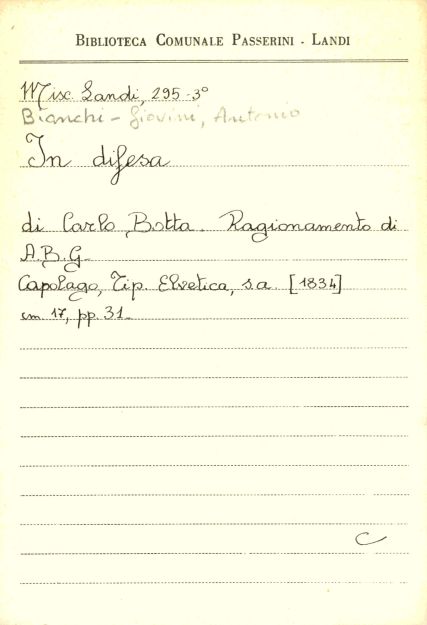 BIBLIOTECA COMUNALE PASSERINI - LANDI
Misc. Landi, 295-3°
Bianchi-Giovini, Antonio
In difesa
di Carlo Botta. Ragionamento di
A.B.G.
Capolago, Tip. Elvetica, s.a. [1834]
cm. 17, pp. 31.
C